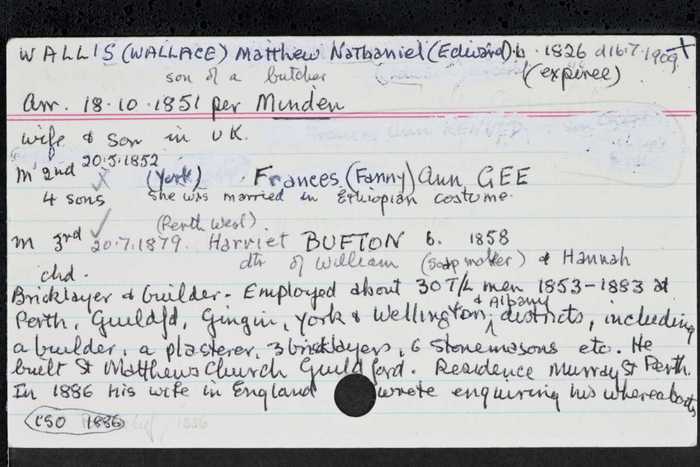 WALLIS (WALLACE) Matthew Nathaniel (Edward) b. 1826 d16.7.1909 +
son of a butcher
(expiree)
Arr. 18.10.1851 per Minden
wife & son in UK.
m 2nd 20.5.1852 (York) Frances (Fanny) Ann GEE
4 sons She was married in Ethiopian costume.
(Perth West).
m 3rd 20.7.1879. Harriet BUFTON b. 1858
dtr of William (soap maker) & Hannah
chd.
Bricklayer & builder. Employed about 30 T/L men 1853-1883 at
Perth, Guildfd, Gingin, York & Wellington & Albany districts, including
a builder, a plasterer, 3 bricklayers, 6 stonemasons etc. He
built St Matthews Church Guildford. Residence Murray St Perth.
In 1886 his wife in England wrote enquiring his whereabouts
CSO 1886